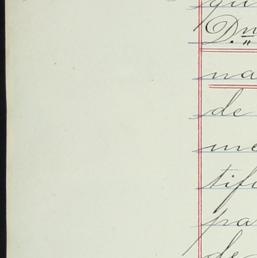 qu
Dn
na
de
me
tifi
pa
de